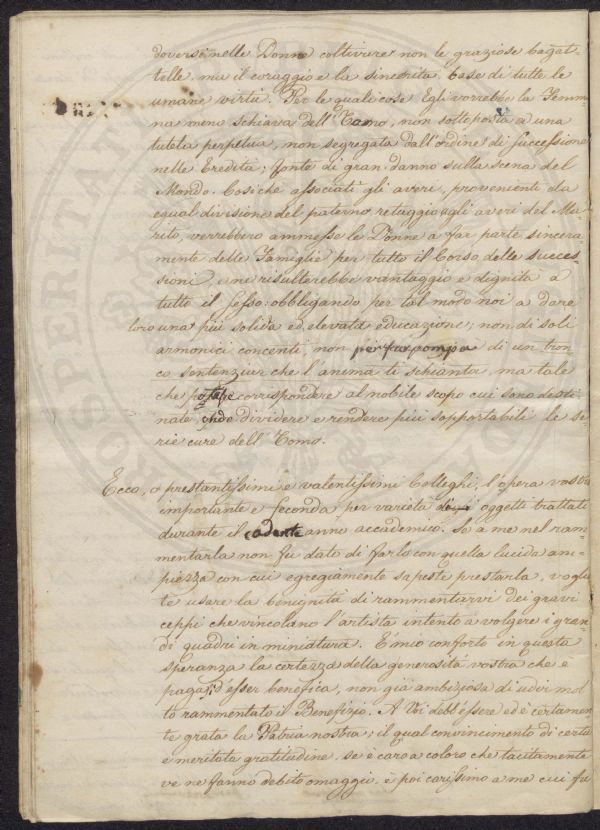 doversi nelle Donne coltivare non le graziose bagat-
telle, ma il coraggio e la sincerità base di tutte le
umane virtù. Per le quali cose Egli vorrebbe la Femmi
na meno schiava dell'Uomo, non sottoposta a una
tutela perpetua, non segregata dall'ordine di successione
nelle Eredità; fonte di gran danno sulla scena del
Mondo. Cosiche associati gli averi, provenienti da
egual divisione del paterno retaggio agli averi del Ma-
rito, verrebbero ammesse le Donne a far parte sincera-
mente delle Famiglie per tutto il Corso delle Succes-
sioni, e ne risulterebbe vantaggio e dignità a
tutto il sesso: obbligando per tal modo noi a dare
loro una più solida ed elevata educazione; non di soli
armonici concenti, non per far pompa di un tron
co sentenziar che l'anima ti schianta, ma tale
che potesse corrispondere al nobile scopo cui sono desti
nate, onde dividere e rendere più sopportabili le se-
rie cure dell'Uomo.
Ecco, o prestantissimi e valentissimi Colleghi, l'opera vostra
importante e feconda per varietà di oggetti trattati
durante il cadente anno accademico. Se a me nel ram-
mentarla non fu dato di farlo con quella lucida am-
piezza con cui egregiamente sapeste prestarla, voglia
te usare la benignità di rammentarvi dei gravi
ceppi che vincolano l'artista intento a volgere i gran-
di quadri in miniatura. È mio conforto in questa
speranza la certezza della generosità vostra che è
paga d'esser benefica, non già ambiziosa di udir mol
to rammentato il Benefizio. A Voi debb'essere ed è certamen
te grata la Patria nostra; il qual convincimento di certa
e meritata gratitudine, se è caro a coloro che tacitamente
ve ne fanno debito omaggio, è poi carissimo a me cui fu